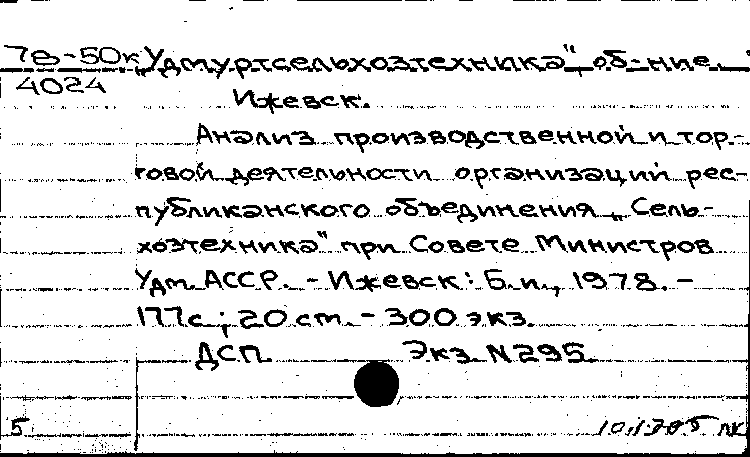 78-50к „Удмуртсельхозтехника", об-ние.
4024
Ижевск.
Анализ производственной и тор-
говой деятельности организаций рес-
публиканского объединения „Сель-
хозтехника" при Совете Министров
Удм. АССР. - Ижевск: Б. и., 1978. -
177с.; 20 см. - 300 экз.
ДСП. Экз. N 295.
5